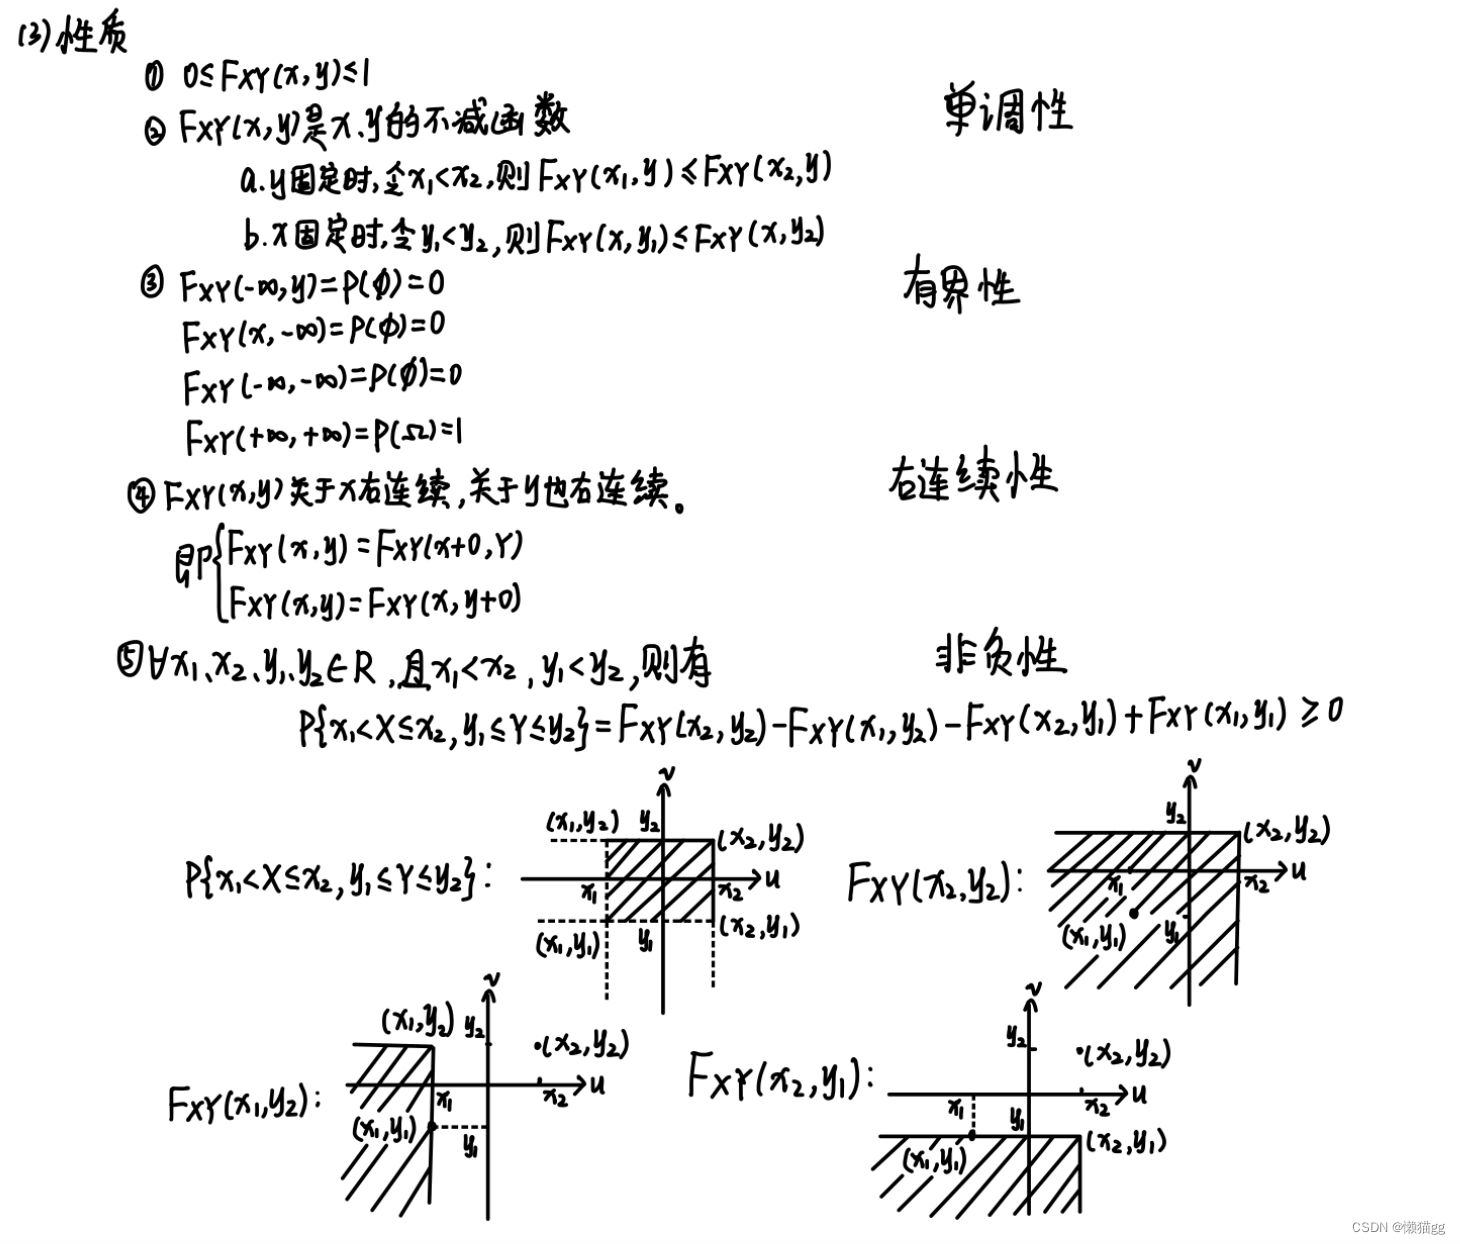 (3)性质
① 0≤FXY(x,y)≤1
② FXY(x,y)是x、y的不减函数 单调性
a.y固定时,令x1<x2,则FXY(x1,y)≤FXY(x2,y)
b.x固定时,令y1<y2,则FXY(x,y1)≤FXY(x,y2)
③ FXY(-∞,y)=P(∅)=0 有界性
FXY(x,-∞)=P(∅)=0
FXY(-∞,-∞)=P(∅)=0
FXY(+∞,+∞)=P(Ω)=1
④ FXY(x,y)关于x右连续,关于y也右连续。 右连续性
即{FXY(x,y)=FXY(x+0,Y)
FXY(x,y)=FXY(x,y+0)
⑤ ∀x1、x2、y1、y2∈R,且x1<x2,y1<y2,则有 非负性
P{x1<X≤x2,y1≤Y≤y2}=FXY(x2,y2)-FXY(x1,y2)-FXY(x2,y1)+FXY(x1,y1)≥0
P{x1<X≤x2,y1≤Y≤y2}:
v
(x1,y2) y2 (x2,y2)
x1 x2 u
(x1,y1) y1 (x2,y1)
FXY(x2,y2):
v
y2 (x2,y2)
x1 x2 u
(x1,y1) y1
FXY(x1,y2):
v
(x1,y2) y2 (x2,y2)
x1 x2 u
(x1,y1) y1
FXY(x2,y1):
v
y2 (x2,y2)
x1 y1 x2 u
(x1,y1) (x2,y1)
CSDN @懒猫gg